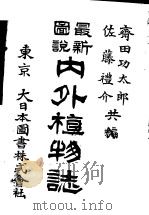 齋田功太郎
佐藤禮介 共編
最新
圖說
內外植物誌
東京 大日本圖書株式會社